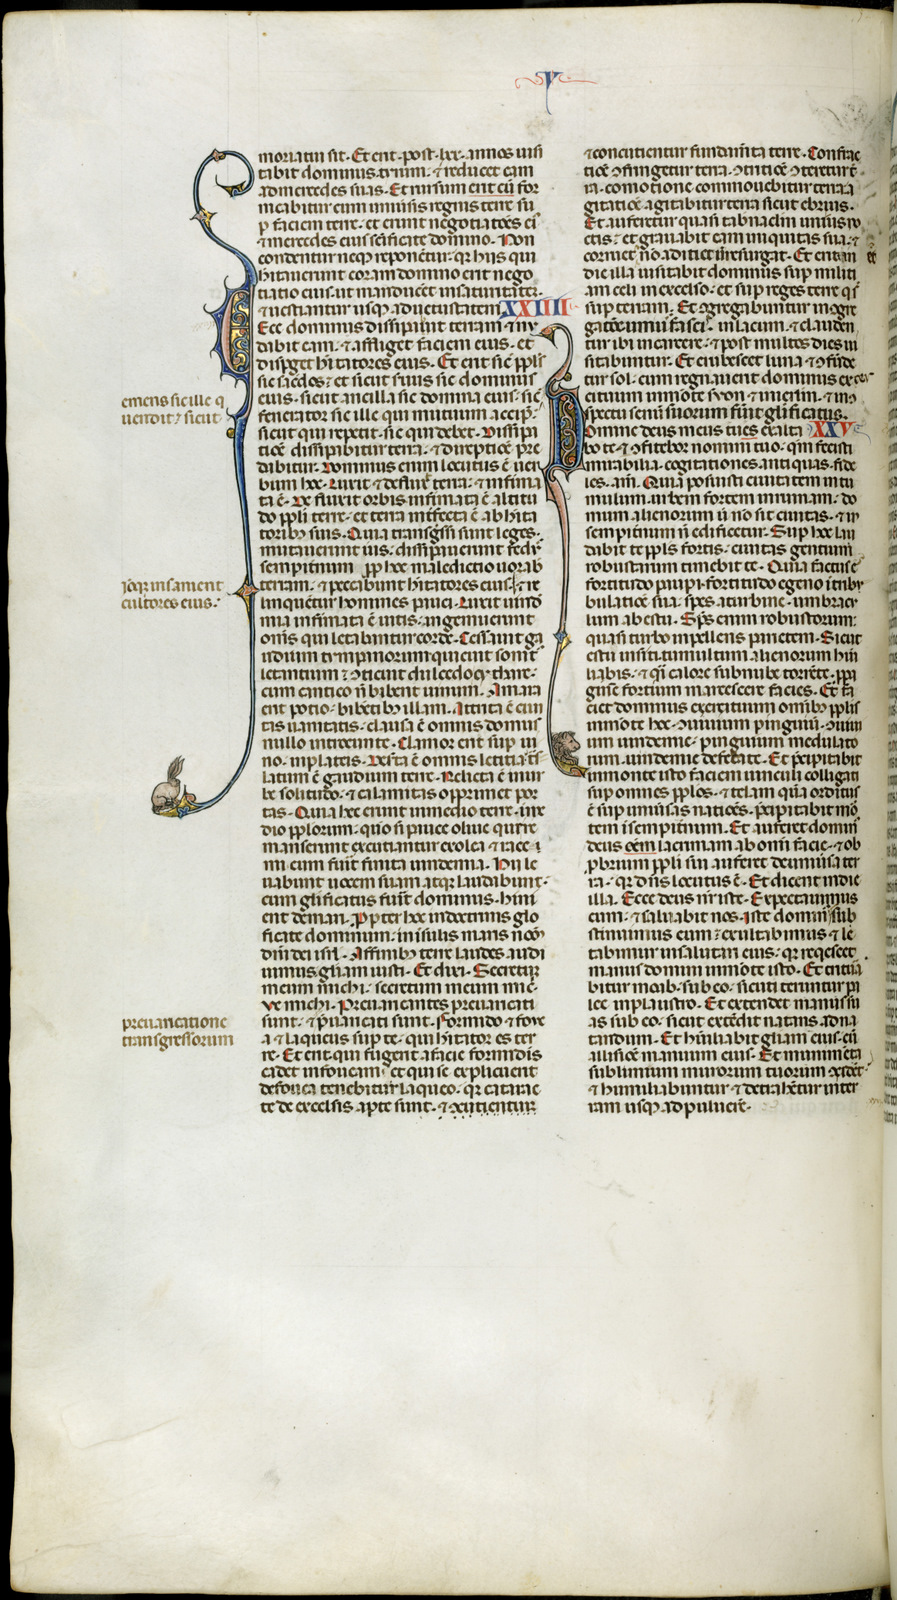 V
moriatur sit. Et erit post. lxx. annos uisi
tabit dominus tirum. ⁊ reducet eam
ad mercedes suas. Et rursum erit cū for
nicabitur cum uniūsis regnis terre su
ꝑ faciem terre. et erunt negotiatōes eī
⁊ mercedes eius scīficate domino. Non
condentur neqꝫ reponētur. qꝛ hiis qui
hītauerint coram domino erit nego
tiatio eius. ut manducēt in saturitatē.
⁊ uestiantur usqꝫ ad uetustatem. XXIIII
Ecce dominus dissipabit terram ⁊ nu
dabit eam. ⁊ affliget faciem eius. et
disperget hītatores eius. Et erit sic ppls
sic sacdos. et sicut seruus sic dominus
eius. sicut ancilla sic domina eius. sic
emens sic ille q
uendit. sicut
fenerator sic ille qui mutuum accipit.
sicut qui repetit. sic qui debet. Dissipa
tiōe dissipabitur terra. ⁊ direptiōe pre
dabitur. Dominus enim locutus ē uer
bum hoc. Luxit ⁊ defluxit terra. ⁊ infirma
ta ē. Defluxit orbis infirmata ē altitu
do ppli terre. et terra infecta ē ab hīta
toribꝫ suis. Quia transgssi sunt leges.
mutauerunt ius. dissipauerunt fedus
sempiternum. ꝓp hoc maledictio uorab
terram. ⁊ peccabunt hītatores eius. ⁊ re
ideoqꝫ insanient
cultores eius.
linquētur homines pauci. Luxit uinde
mia infirmata ē uitis. ingemuerunt
omīs qui letabantur corde. Cessauit ga
udium tympanorum quieuit sonit
letantium ⁊ ꝯticuit dulcedo cythare.
cum cantico nō bibent uinum. Amara
erit potio. bibētibꝫ illam. Attrita ē ciui
tas uanitatis. clausa ē omnis domus
nullo introeunte. Clamor erit sup ui
no. in plateis. Deserta ē omnis letitia trās
latum ē gaudium terre. Relicta ē in ur
be solitudo. ⁊ calamitas opprimet por
tas. Quia hec erunt in medio terre. in me
dio pplorum. quō si pauce oliue que re
manserunt excutiantur ex olea. ⁊ race
mi cum fuīt finita uindemia. Hii le
uabunt uocem suam atqꝫ laudabunt.
cum glificatus fuīt dominus. hinni
ent de mari. Propter hoc in doctrinis glo
ficate dominum. in insulis maris nōeꝫ
dnī dei isrl. A finibꝫ terre laudes audi
uimus gliam iusti. Et dixi. Secretum
meum michi. secretum meum michi.
ve michi. Preuaricantes preuaricati
sunt. ⁊ ꝑuaricati sunt. Formido ⁊ foue
preuaricatione
transgressorum
a ⁊ laqueus sup te. qui hītator es ter
re. Et erit. qui fugerit a facie formidis
cadet in foueam. et qui se explicuerit
de fouea tenebitur laqueo. qꝛ catarac
te de excelsis apte sunt. ⁊ ꝯcutientur
⁊ concutientur fundamīta terre. Confrac
tiōe ꝯfringetur terra. ꝯtritiōe ꝯteretur tr
ra. comotione commouebitur terra. a
gitatiōe agitabitur terra sicut ebrius.
Et auferetur quasi tabnaclm unius no
ctis. et grauabit eam iniquitas sua. ⁊
corruet. ⁊ nō adiciet ut resurgat. Et erit in
die illa uisitabit dominus sup militi
am celi in excelso. et sup reges terre qi
sup terram. Et ꝯgregabuntur in ꝯgre
gatōe unius fascis. in lacum. ⁊ clauden
tur ibi in carcere. ⁊ post multos dies ui
sitabuntur. Et erubescet luna ⁊ ꝯfunde
tur sol. cum regnauerit dominus exer
cituum in mōte syon ⁊ in ierlm. ⁊ in ꝯ
spectu senū suorum fuīt glificatus.
Domine deus meus tu es exalta XXV
bo te ⁊ ꝯfitebor nomini tuo. qm fecisti
mirabilia. cogitationes antiquas fide
les. am. Quia posuisti ciuitatem in tu
mulum. urbem fortem in ruinam. do
mum alienorum ut nō sit ciuitas. ⁊ in
sempiternum nō edificetur. Sup hoc lau
dabit te ppls fortis. ciuitas gentium
robustarum timebit te. Quia factus es
fortitudo paupi. fortitudo egeno in tribu
latiōe sua. spes a turbine. umbracu
lum ab estu. Sps enim robustorum
quasi turbo impellens parietem. Sicut
estum in siti. tumultum alienorum hūi
liabis. ⁊ qi calore sub nube torrente. ꝓpa
ginē fortium marcescere facies. Et fa
ciet dominus exercituum omibꝫ pplis
in mōte hoc. ꝯuiuium pinguium. ꝯuiui
um uindemie. pinguium medulato
rum. uindemie defecate. Et ꝑcipitabit
in monte isto faciem uinculi colligati
sup omnes pplos. ⁊ telam quā orditus
ē sup uniūsas natiōes. ꝑcipitabit mor
tem ī sempiternum. Et auferet dominus
deus oēm lacrimam ab omi facie. ⁊ ob
ꝓbrium ppli sui auferet de uniūsa ter
ra. qꝛ dns locutus ē. Et dicent in die
illa. Ecce deus nr iste. Expectauimus
eum. ⁊ saluabit nos. iste dominus sub
stinuimus eum. exultabimus ⁊ le
tabimur in salutari eius. qꝛ reqescet
manus domini in mōte isto. Et tritura
bitur moab. sub eo. sicut teruntur pa
lee in plaustro. Et extendet manus su
as sub eo. sicut extēdit natans ad na
tandum. Et hūiliabit gliam eius. cū
allisiōe manuum eius. Et munimēta
sublimium murorum tuorum ꝯcidet
⁊ humiliabuntur. ⁊ detrahētur in ter
ram usqꝫ ad puluerē.